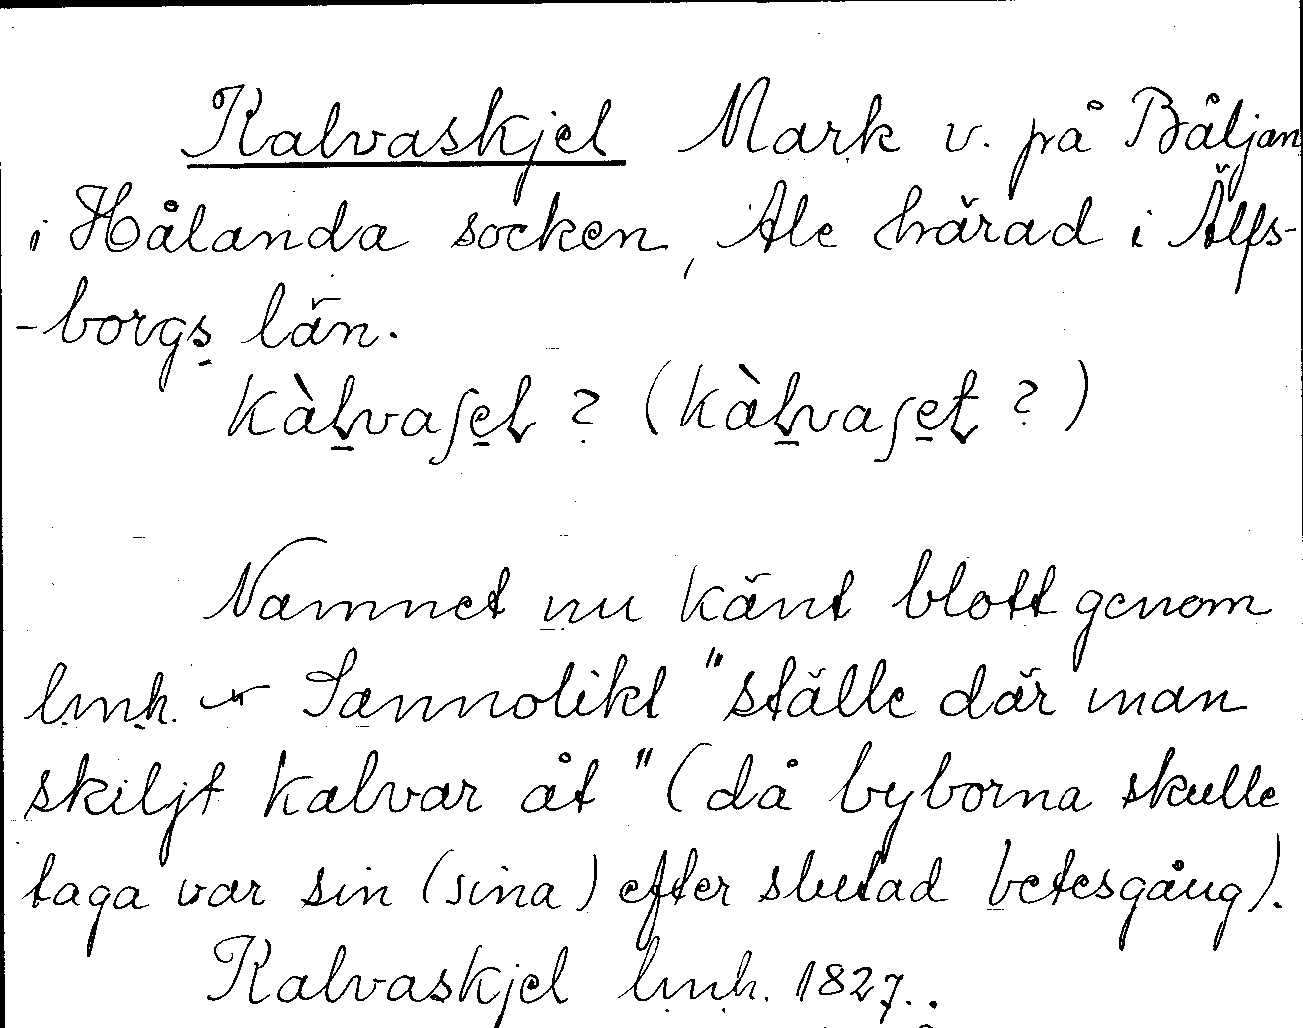 Kalvaskjel Mark v. på Båljan
i Hålanda socken, Ale härad i Älfs-
-borgs län.
kàlvaʃel ? (kàlvaʃet ?)
Namnet nu känt blott genom
lmh. Sannolikt "ställe där man
skiljt kalvar åt" (då byborna skulle
taga var sin (sina) efter slutad betesgång).
Kalvaskjel lmh. 1827.